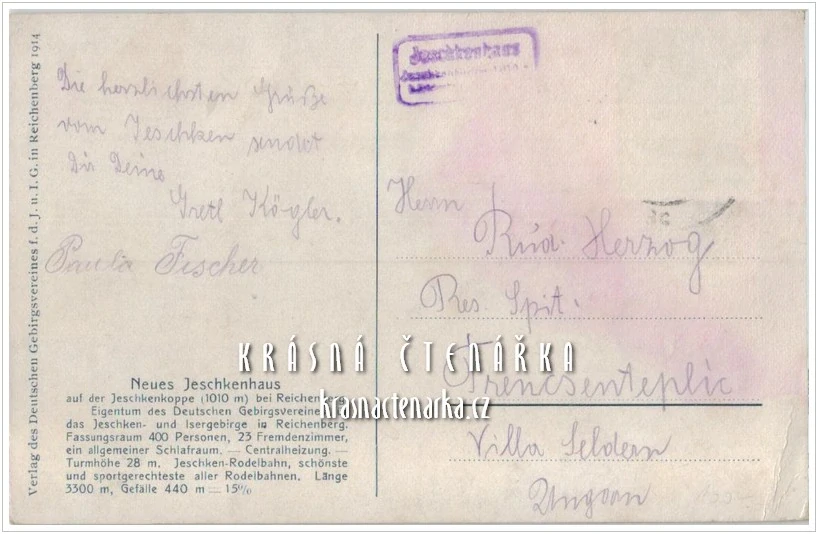 Verlag des Deutschen Gebirgsvereines f. d. J. u. I. G. in Reichenberg 1914
Die herzlichsten Grüße
vom Jeschken sendet
Dir Deine
Gretl Kögler.
Paula Fischer
Neues Jeschkenhaus
auf der Jeschkenkoppe (1010 m) bei
Eigentum des Deutschen Gebirgsvereine
das Jeschken- und Isergebirge in Reichenberg.
Fassungsraum 400 Personen, 23 Fremdenzimmer,
ein allgemeiner Schlafraum. — Centralheizung. —
Turmhöhe 28 m. Jeschken-Rodelbahn, schönste
und sportgerechteste aller Rodelbahnen. Länge
3300 m, Gefälle 440 m = 15%
Jeschkenhaus
Herrn
Rud. Herzog
Res. Spit.
Trencsenteplic
Villa
Ungarn
KRÁSNÁ ČTENÁŘKA
krasnactenarka.cz